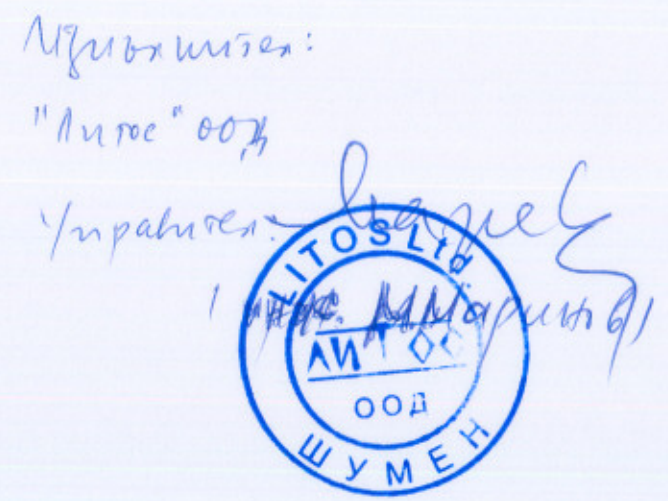 Изпълнител:
"Литос" ООД
Управител:
/ инж. М Маринов /
LITOS Ltd
ЛИТОС
ООД
ШУМЕН